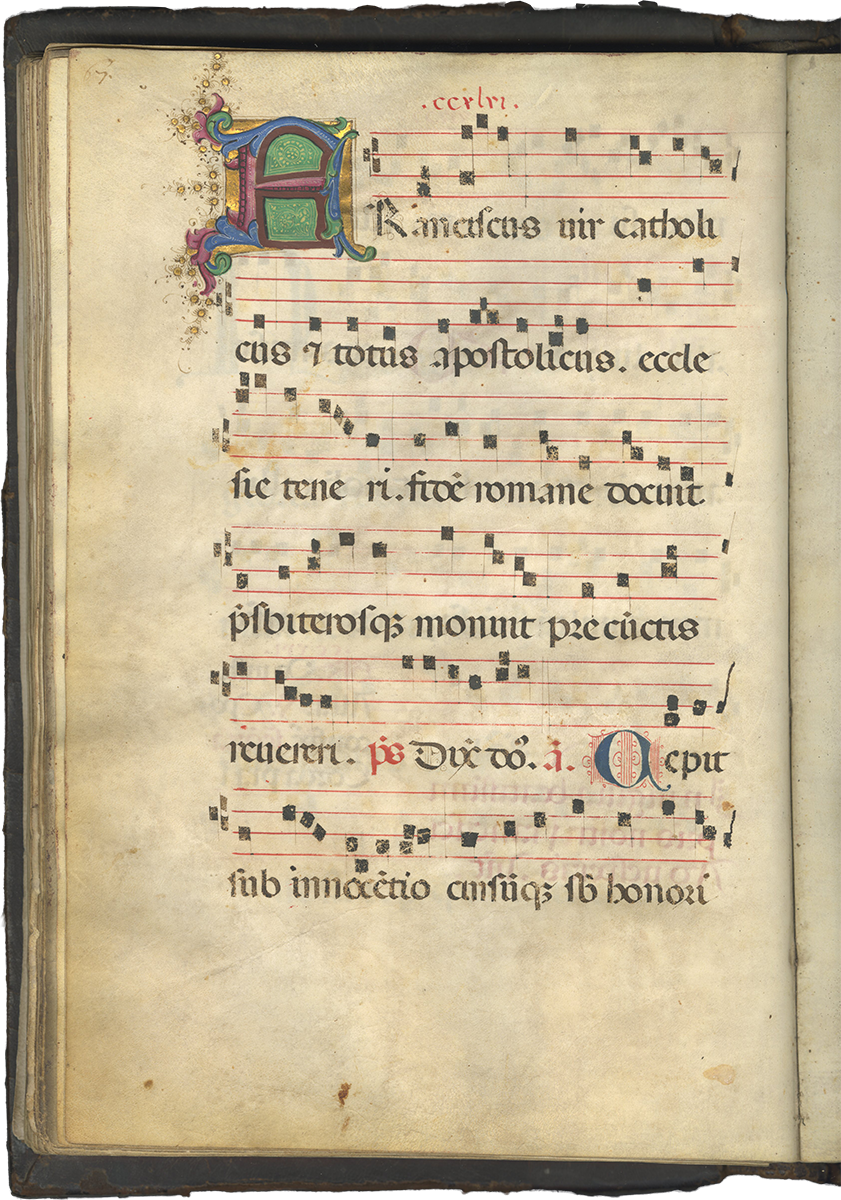 67.
.ccxlvi.
FRanciscus uir catholi
cus ⁊ totus apostolicus. eccle
sie tene ri. fidē romane docuit
p̄sbiterosqꝫ monuit pre cūctis
reuereri. p̄s Dix̄ dōꝰ. ā. Cepit
sub innocētio cursūqꝫ sb̄ honori